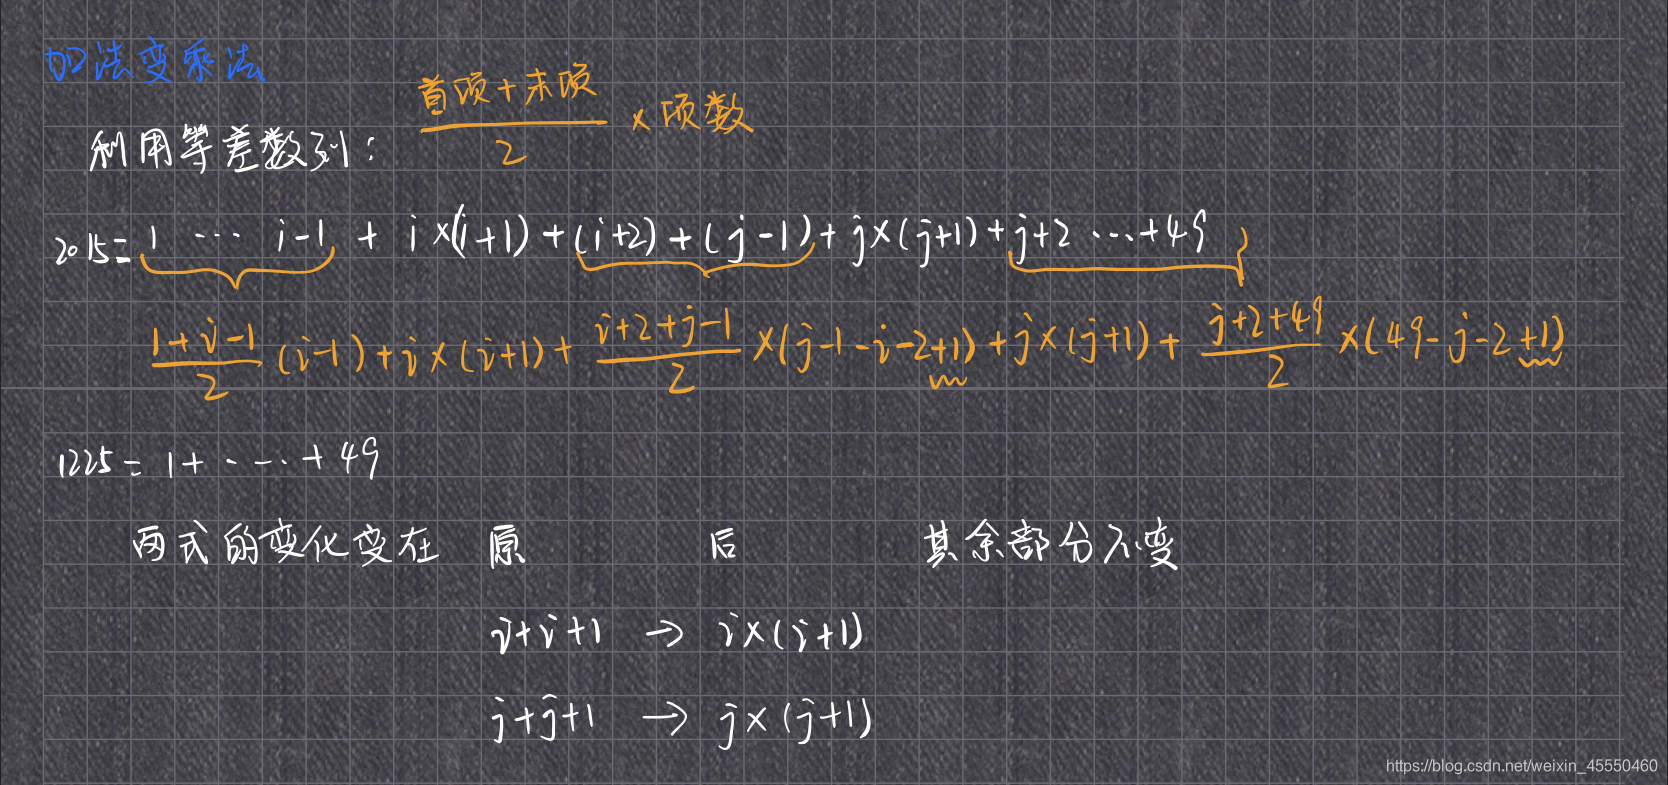 加法变乘法
首项+末项
利用等差数列: ×项数
2
2015= 1 … i-1 + i×(i+1)+(i+2)+(j-1)+j×(j+1)+j+2 …+49
1+i-1/2 (i-1)+i×(i+1)+ i+2+j-1/2 ×(j-1-i-2+1)+j×(j+1)+ j+2+49/2 ×(49-j-2+1)
1225= 1+ ‥‥+49
两式的变化变在 原 后 其余部分不变
i+i+1 → i×(i+1)
j+j+1 → j×(j+1)
https://blog.csdn.net/weixin_45550460